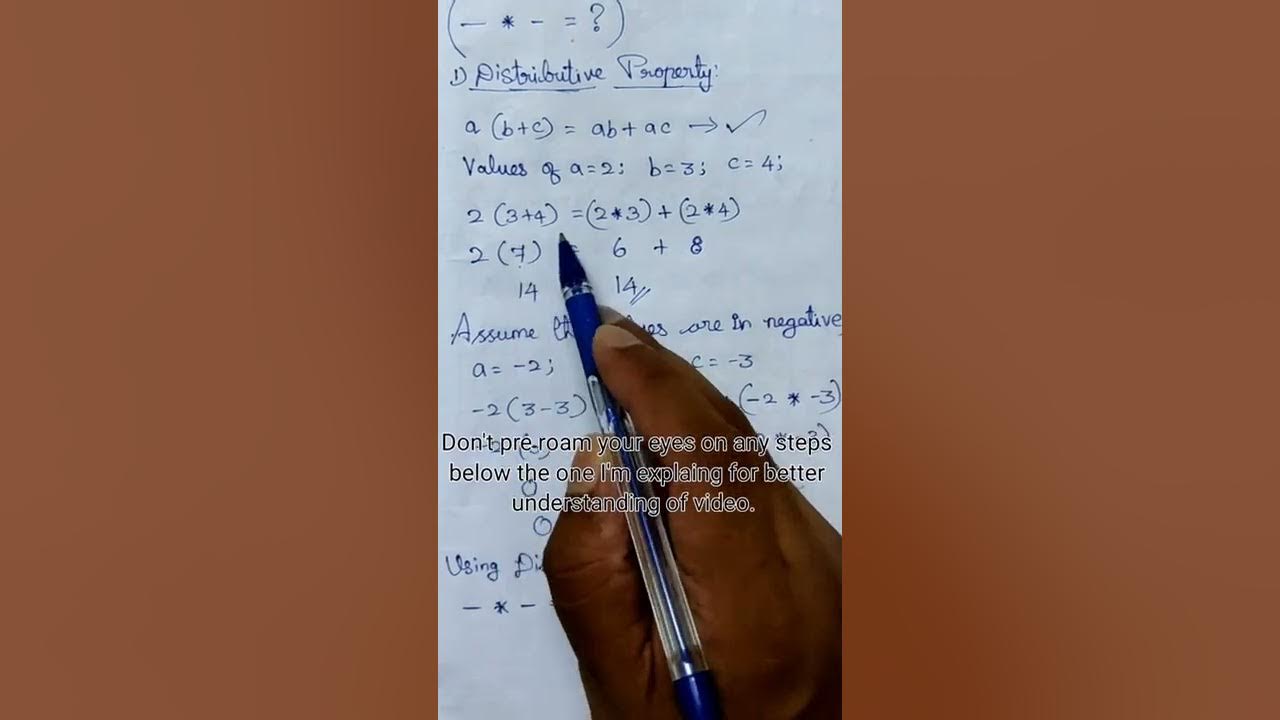 (— * - = ?)
1) Distributive Property:
a (b+c) = ab + ac → ✓
Values of a=2; b=3; c=4;
2 (3+4) = (2*3) + (2*4)
2 (7) = 6 + 8
14 14
Assume are in negative,
a = -2; c = -3
-2 (3-3) (-2 * -3)
Don't pre-roam your eyes on any steps
below the one I'm explaing for better
understanding of video.
0
0
Using
— * -